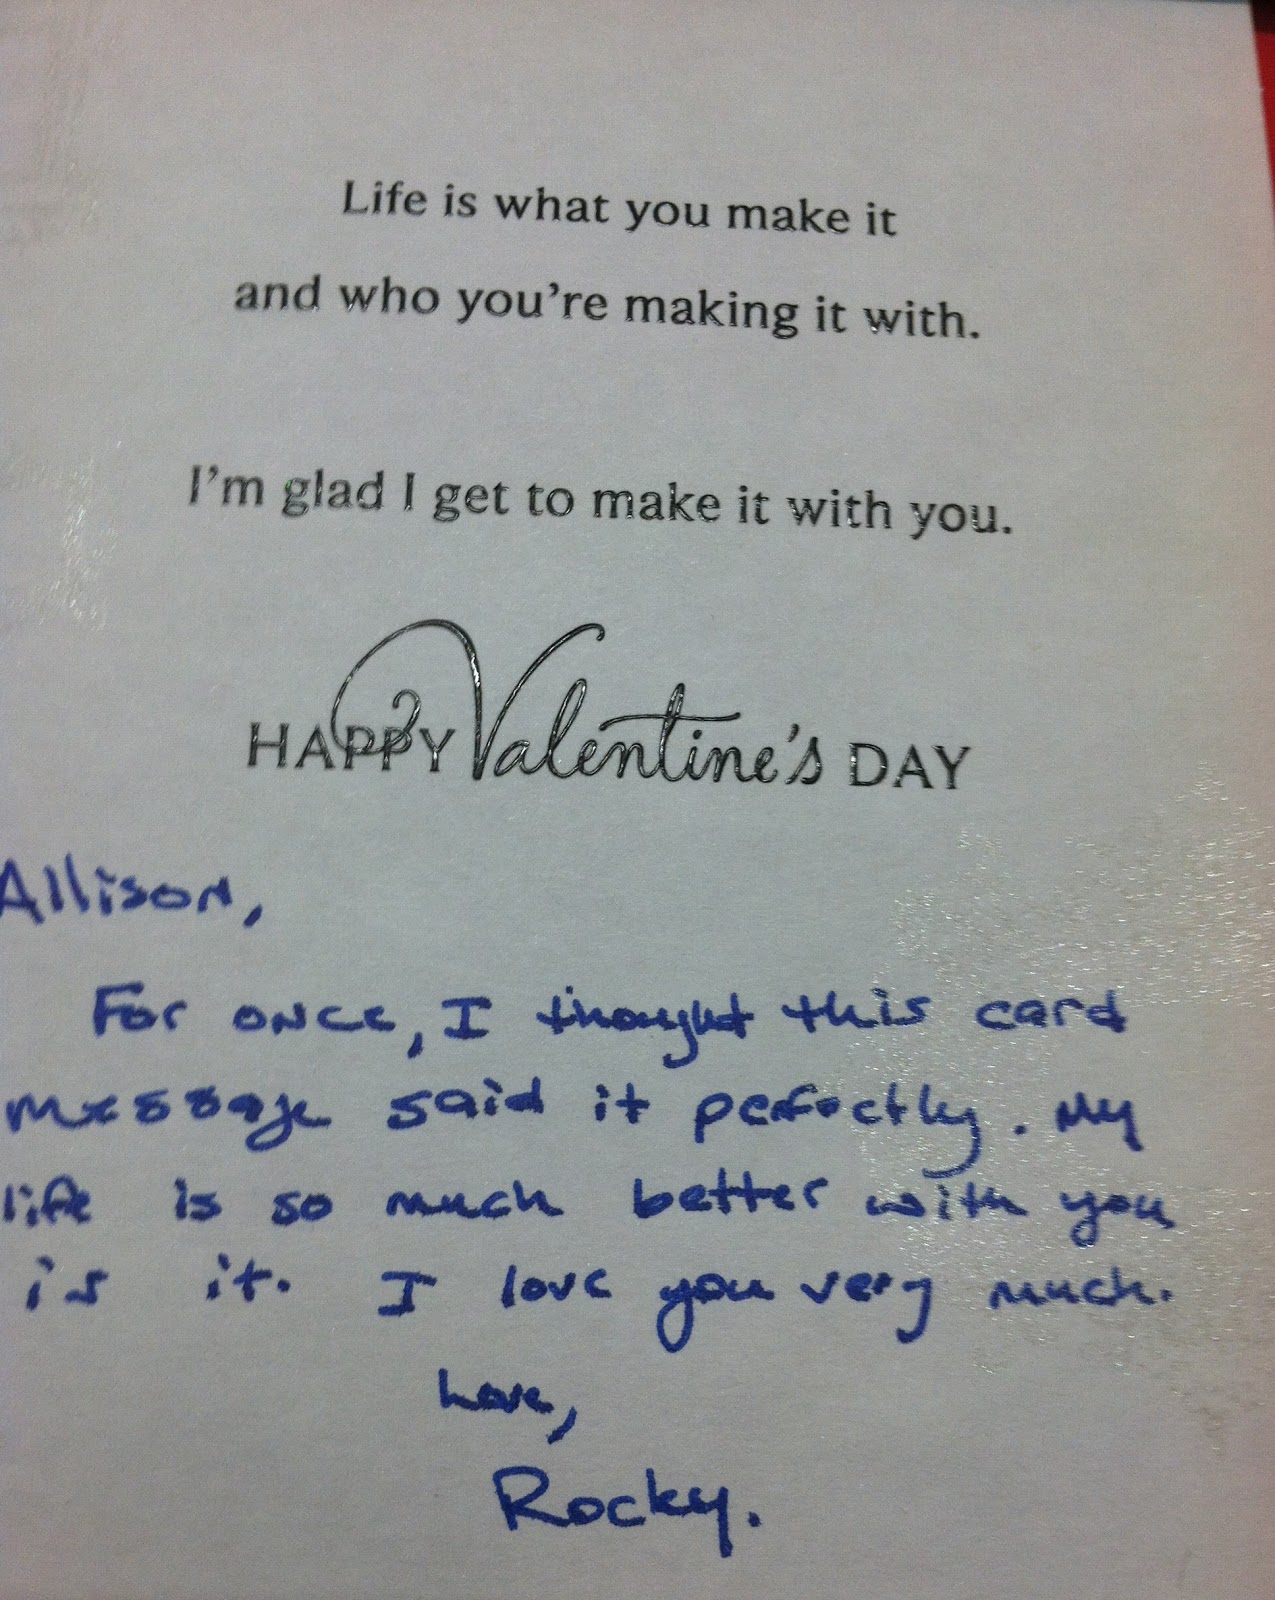 Life is what you make it
and who you're making it with.
I'm glad I get to make it with you.
HAPPY Valentine's DAY
Allison,
For once, I thought this card
message said it perfectly. My
life is so much better with you
is it. I love you very much.
Love,
Rocky.